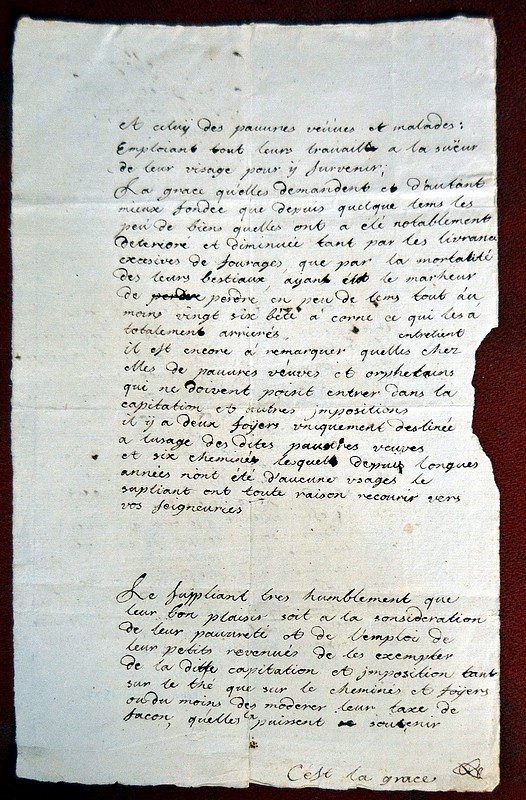 et celuÿ des pauures veúves et malades:
Emploiant tout leurs travaill a la suëur
de leur visage pour ÿ survenir;
La grace qu'elles demandent et d'autant
mieux fondée que depuis quelque tems les
peu de biens quelles ont a élé notablement
deterioré et diminuée tant par les livrance
excesives de fourages, que par la mortalité
des leurs bestiaux, ayant le marheur
de perdre perdre en peu de tems tout áu
moins vingt six bête a corne ce qui les a
totalement arrierés, entretient
il est encore à remarquer quelles chez
elles de pauures véuves et orphetains
qui ne doivent point entrer dans la
capitation et autres jmpositions
il ÿ a deux foÿers vniquement destinée
a lusage des dites pauures veuves
et six cheminés lesquels depuis longues
années n'ont été d'aucune vsages le
supliant ont toute raison recourir vers
vos seigneuries
Le suppliant tres humblement que
leur bon plaisir soit a la sonsideration
de leur pauureté et de l'emploi de
leur petits revenués de les exempter
de la ditte capitation et jmposition tant
sur le thé que sur le cheminés et foÿers
ou du moins des moderer leur taxe de
facon, quélles la puissent soutenir
C'est la grace